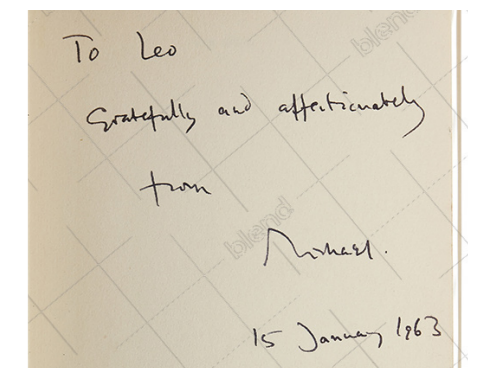 To Leo
Gratefully and affectionately
from
Michael.
15 January 1963
blend
blend